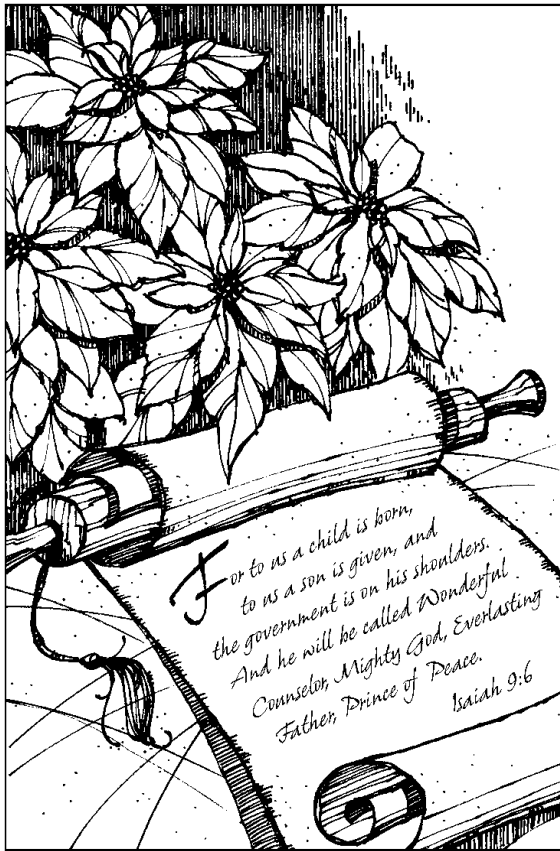 For to us a child is born,
to us a son is given, and
the government is on his shoulders.
And he will be called Wonderful
Counselor, Mighty God, Everlasting
Father, Prince of Peace.
Isaiah 9:6